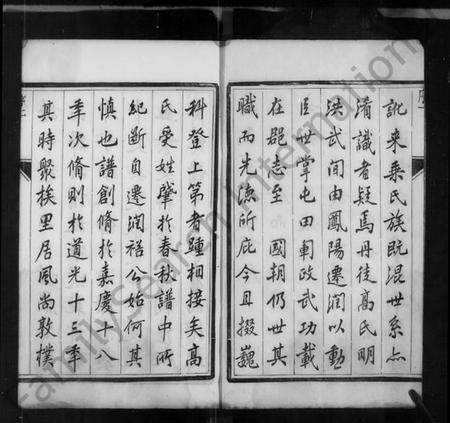 訛来乗氏族既混世系点
淆識者疑焉丹徒髙氏明
洪武间由鳳陽遷润以勳
臣世掌屯田軍政武功載
在郡志至 國朝仍世其
職而先澤所庇今且掇巍
科登上第者踵相接矣髙
氏受姓肇於春秋譜中所
紀断自遷润裕公始何其
慎也譜創脩於嘉慶十八
年次脩則於道光十三年
其時聚族里居風尚敦樸
序
FamilySearch International